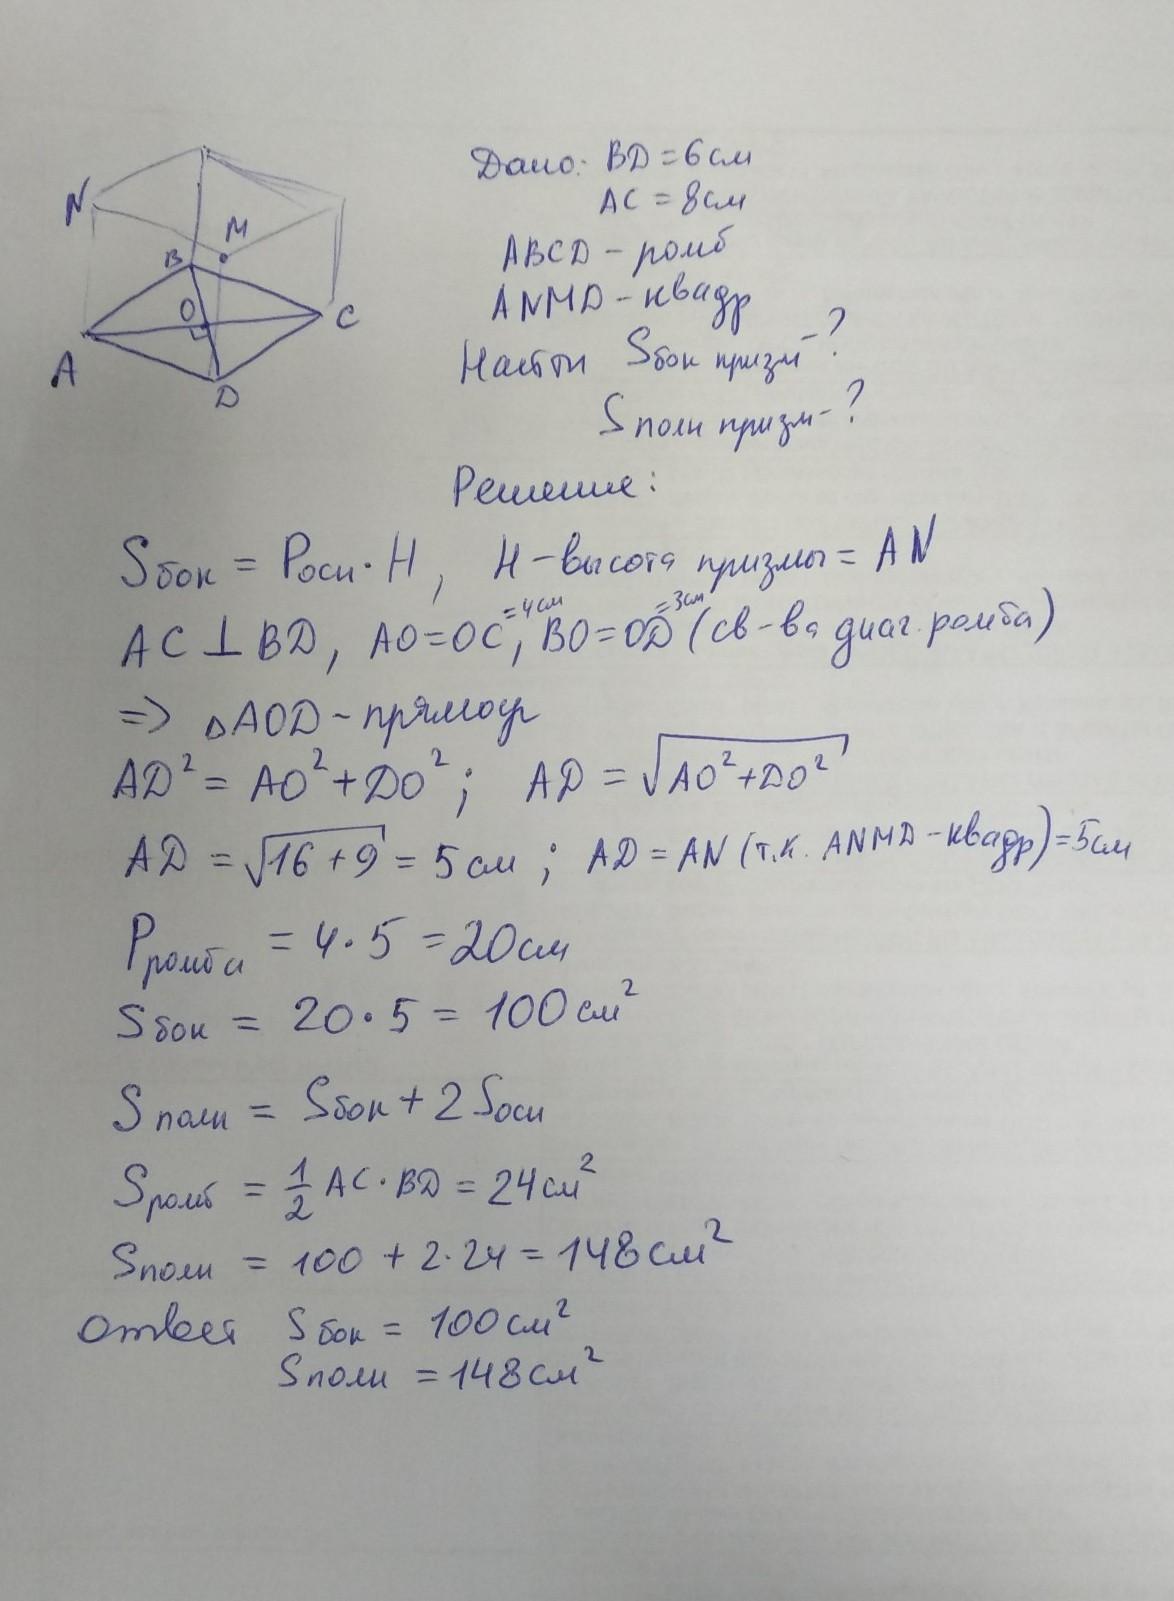 N
M
B
O
C
A
D
Дано: BD = 6см
AC = 8см
ABCD - ромб
ANMD - квадр
Найти Sбок призм - ?
Sполн призм - ?
Решение:
Sбок = Pосн · H, H - высота призмы = AN
AC ⊥ BD, AO = OC = 4см, BO = OD = 3см (св-ва диаг. ромба)
=> △AOD - прямоуг
AD² = AO² + DO²; AD = √AO² + DO²
AD = √16 + 9 = 5см; AD = AN (т.к. ANMD - квадр) = 5см
Pромба = 4 · 5 = 20см
Sбок = 20 · 5 = 100см²
Sполн = Sбок + 2Sосн
Sромб = 1/2 AC · BD = 24см²
Sполн = 100 + 2 · 24 = 148см²
Ответ Sбок = 100см²
Sполн = 148см²